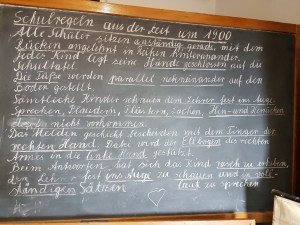 Schulregeln aus der Zeit um 1900
Alle Schüler sitzen anständig, gerade mit dem
Rücken angelehnt in Reihen hintereinander.
Jedes Kind legt seine Hände geschlossen auf die
Schultafel.
Die Füße werden parallel nebeneinander auf den
Boden gestellt.
Sämtliche Kinder schauen dem Lehrer fest ins Auge.
Sprechen, Plaudern, Flüstern, Lachen, Hin- und
nicht vorkommen.
Das Melden geschieht bescheiden mit dem Finger der
rechten Hand. Dabei wird der Ellbogen des rechten
Armes in die linke Hand gestützt.
Beim Antworten hat sich das Kind rasch zu erheben,
dem fest ins Auge zu schauen und in voll-
ständigen Sätzen laut zu sprechen